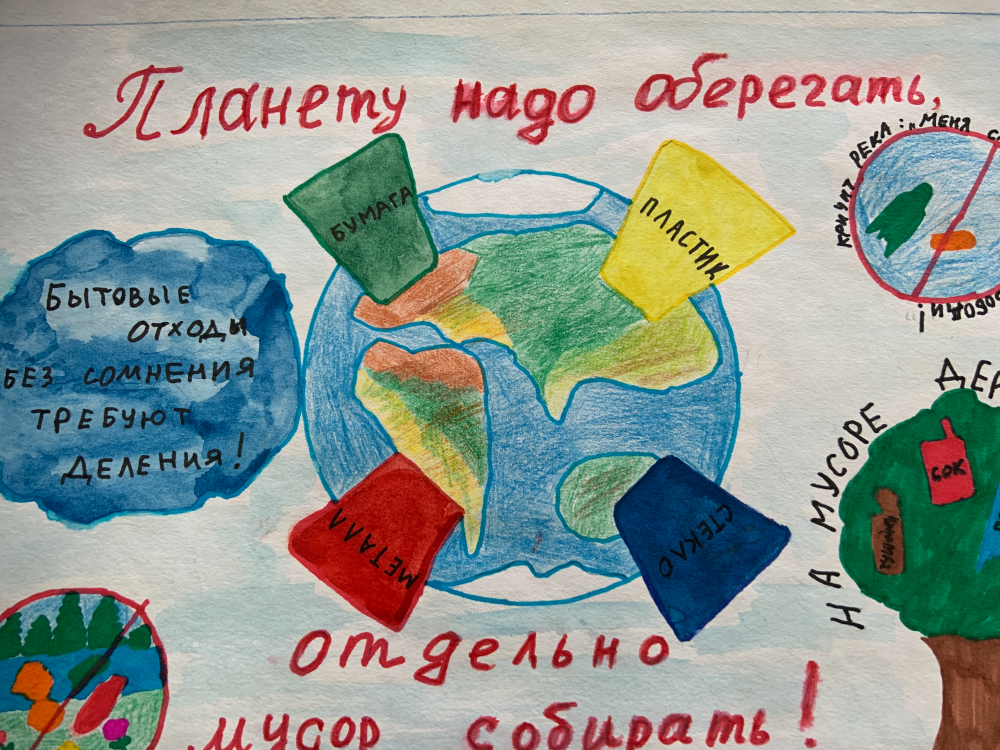 Планету надо оберегать,
БУМАГА
ПЛАСТИК
КРИЧИТ РЕКА: „МЕНЯ
БЫТОВЫЕ
ОТХОДЫ
БЕЗ СОМНЕНИЯ
ТРЕБУЮТ
ДЕЛЕНИЯ!
МЕТАЛЛ
СТЕКЛО
НА МУСОРЕ
СОК
отдельно
мусор собирать!